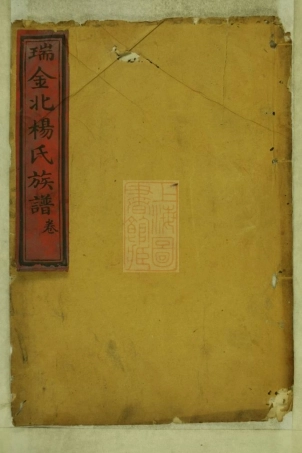 瑞金北楊氏族譜卷
上海圖
書館藏